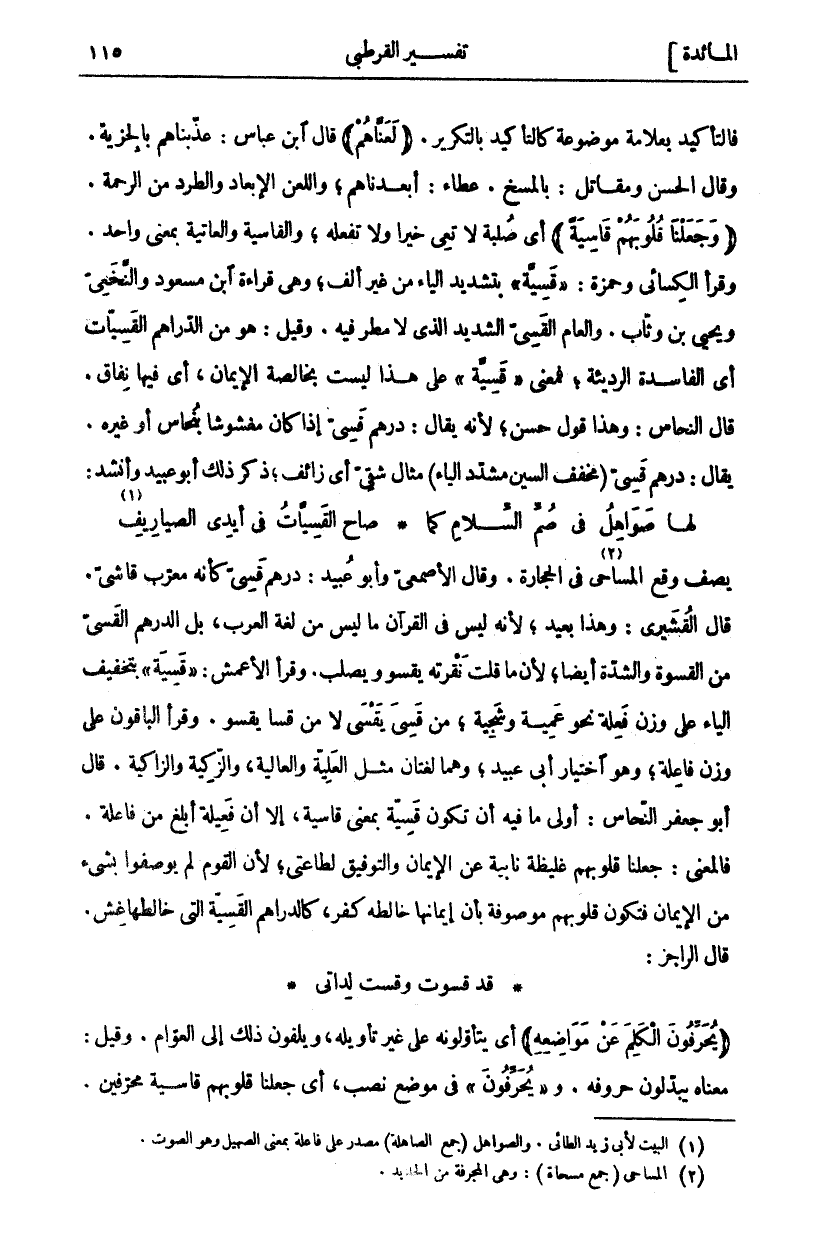 المـائدة ]
تفســـير القرطبى
١١٥
فالتأكيد بعلامة موضوعة كالتأكيد بالتكرير . ﴿ لَعَنَّاهُمْ ﴾ قال ٱبن عباس : عذّبناهم بالجزية .
وقال الحسن ومقـاتل : بالمسخ . عطاء : أبعـدناهم ؛ واللعن الإبعاد والطرد من الرحمة .
﴿ وَجَعَلْنَا قُلُوبَهُمْ قَاسِيَةً ﴾ أى صُلبة لا تعِى خيرا ولا تفعله ؛ والقاسية والعاتية بمعنى واحد .
وقرأ الكسائى وحمزة : « قَسِيَّة » بتشديد الياء من غير ألف ؛ وهى قراءة ٱبن مسعود والنَّخَعِىّ
ويحيى بن وثّاب . والعام القَسِىّ الشديد الذى لا مطر فيه . وقيل : هو من الدّراهم القَسِيّات
أى الفاسـدة الرديئة ؛ فمعنى « قَسِيَّة » على هـذا ليست بخالصة الإيمان ، أى فيها نِفاق .
قال النحاس : وهذا قول حسن ؛ لأنه يقال : درهم قَسِىّ إذا كان مغشوشا بنُحاس أو غيره .
يقال : درهم قَسِىّ ( مخفف السين مشدّد الياء ) مثال شقِىّ أى زائف ؛ ذكر ذلك أبو عبيد وأنشد :
لهـا صَوَاهِلُ فى صُمِّ السِّــلامِ كما * صاح القَسِيَّاتُ فى أيدى الصياريفِ (١)
يصف وقع المساحى (٢) فى الحجارة . وقال الأصمعىّ وأبو عُبيد : درهم قَسِىّ كأنه معرّب قاشىّ .
قال القُشَيرى : وهذا بعيد ؛ لأنه ليس فى القرآن ما ليس من لغة العرب ، بل الدرهم القَسىّ
من القسوة والشدّة أيضا ؛ لأن ما قلت نَقْرته يقسو و يصلب . وقرأ الأعمش : « قَسِيَة » بتخفيف
الياء على وزن فَعِلة نحو عَمِيـة وشَجِية ؛ من قَسِىَ يَقْسَى لا من قسا يقسو . وقرأ الباقون على
وزن فاعِلة ؛ وهو ٱختيار أبى عبيد ؛ وهما لغتان مثـل العَلِيّة والعالية ، والزّكِية والزاكية . قال
أبو جعفر النّحاس : أولى ما فيه أن تكون قَسِيّة بمعنى قاسية ، إلا أن فَعِيلة أبلغ من فاعلة .
فالمعنى : جعلنا قلوبهم غليظة نابية عن الإيمان والتوفيق لطاعتى ؛ لأن القوم لم يوصفوا بشىء
من الإيمان فتكون قلوبهم موصوفة بأن إيمانها خالطه كفر ، كالدراهم القَسِيّة التى خالطها غش .
قال الراجز :
* قد قسوت وقست لِداتى *
﴿ يُحَرِّفُونَ الْكَلِمَ عَنْ مَوَاضِعِهِ ﴾ أى يتأوّلونه على غير تأويله ، ويلقون ذلك إلى العوّام . وقيل :
معناه يبدّلون حروفه . و « يُحَرِّفُونَ » فى موضع نصب ، أى جعلنا قلوبهم قاسـية محرّفين .
(١) البيت لأبى زبيد الطائى . والصواهل ( جمع الصاهلة ) مصدر على فاعلة بمعنى الصهيل وهو الصوت .
(٢) المساحى ( جمع مسحاة ) : وهى المجرفة من الحديد .